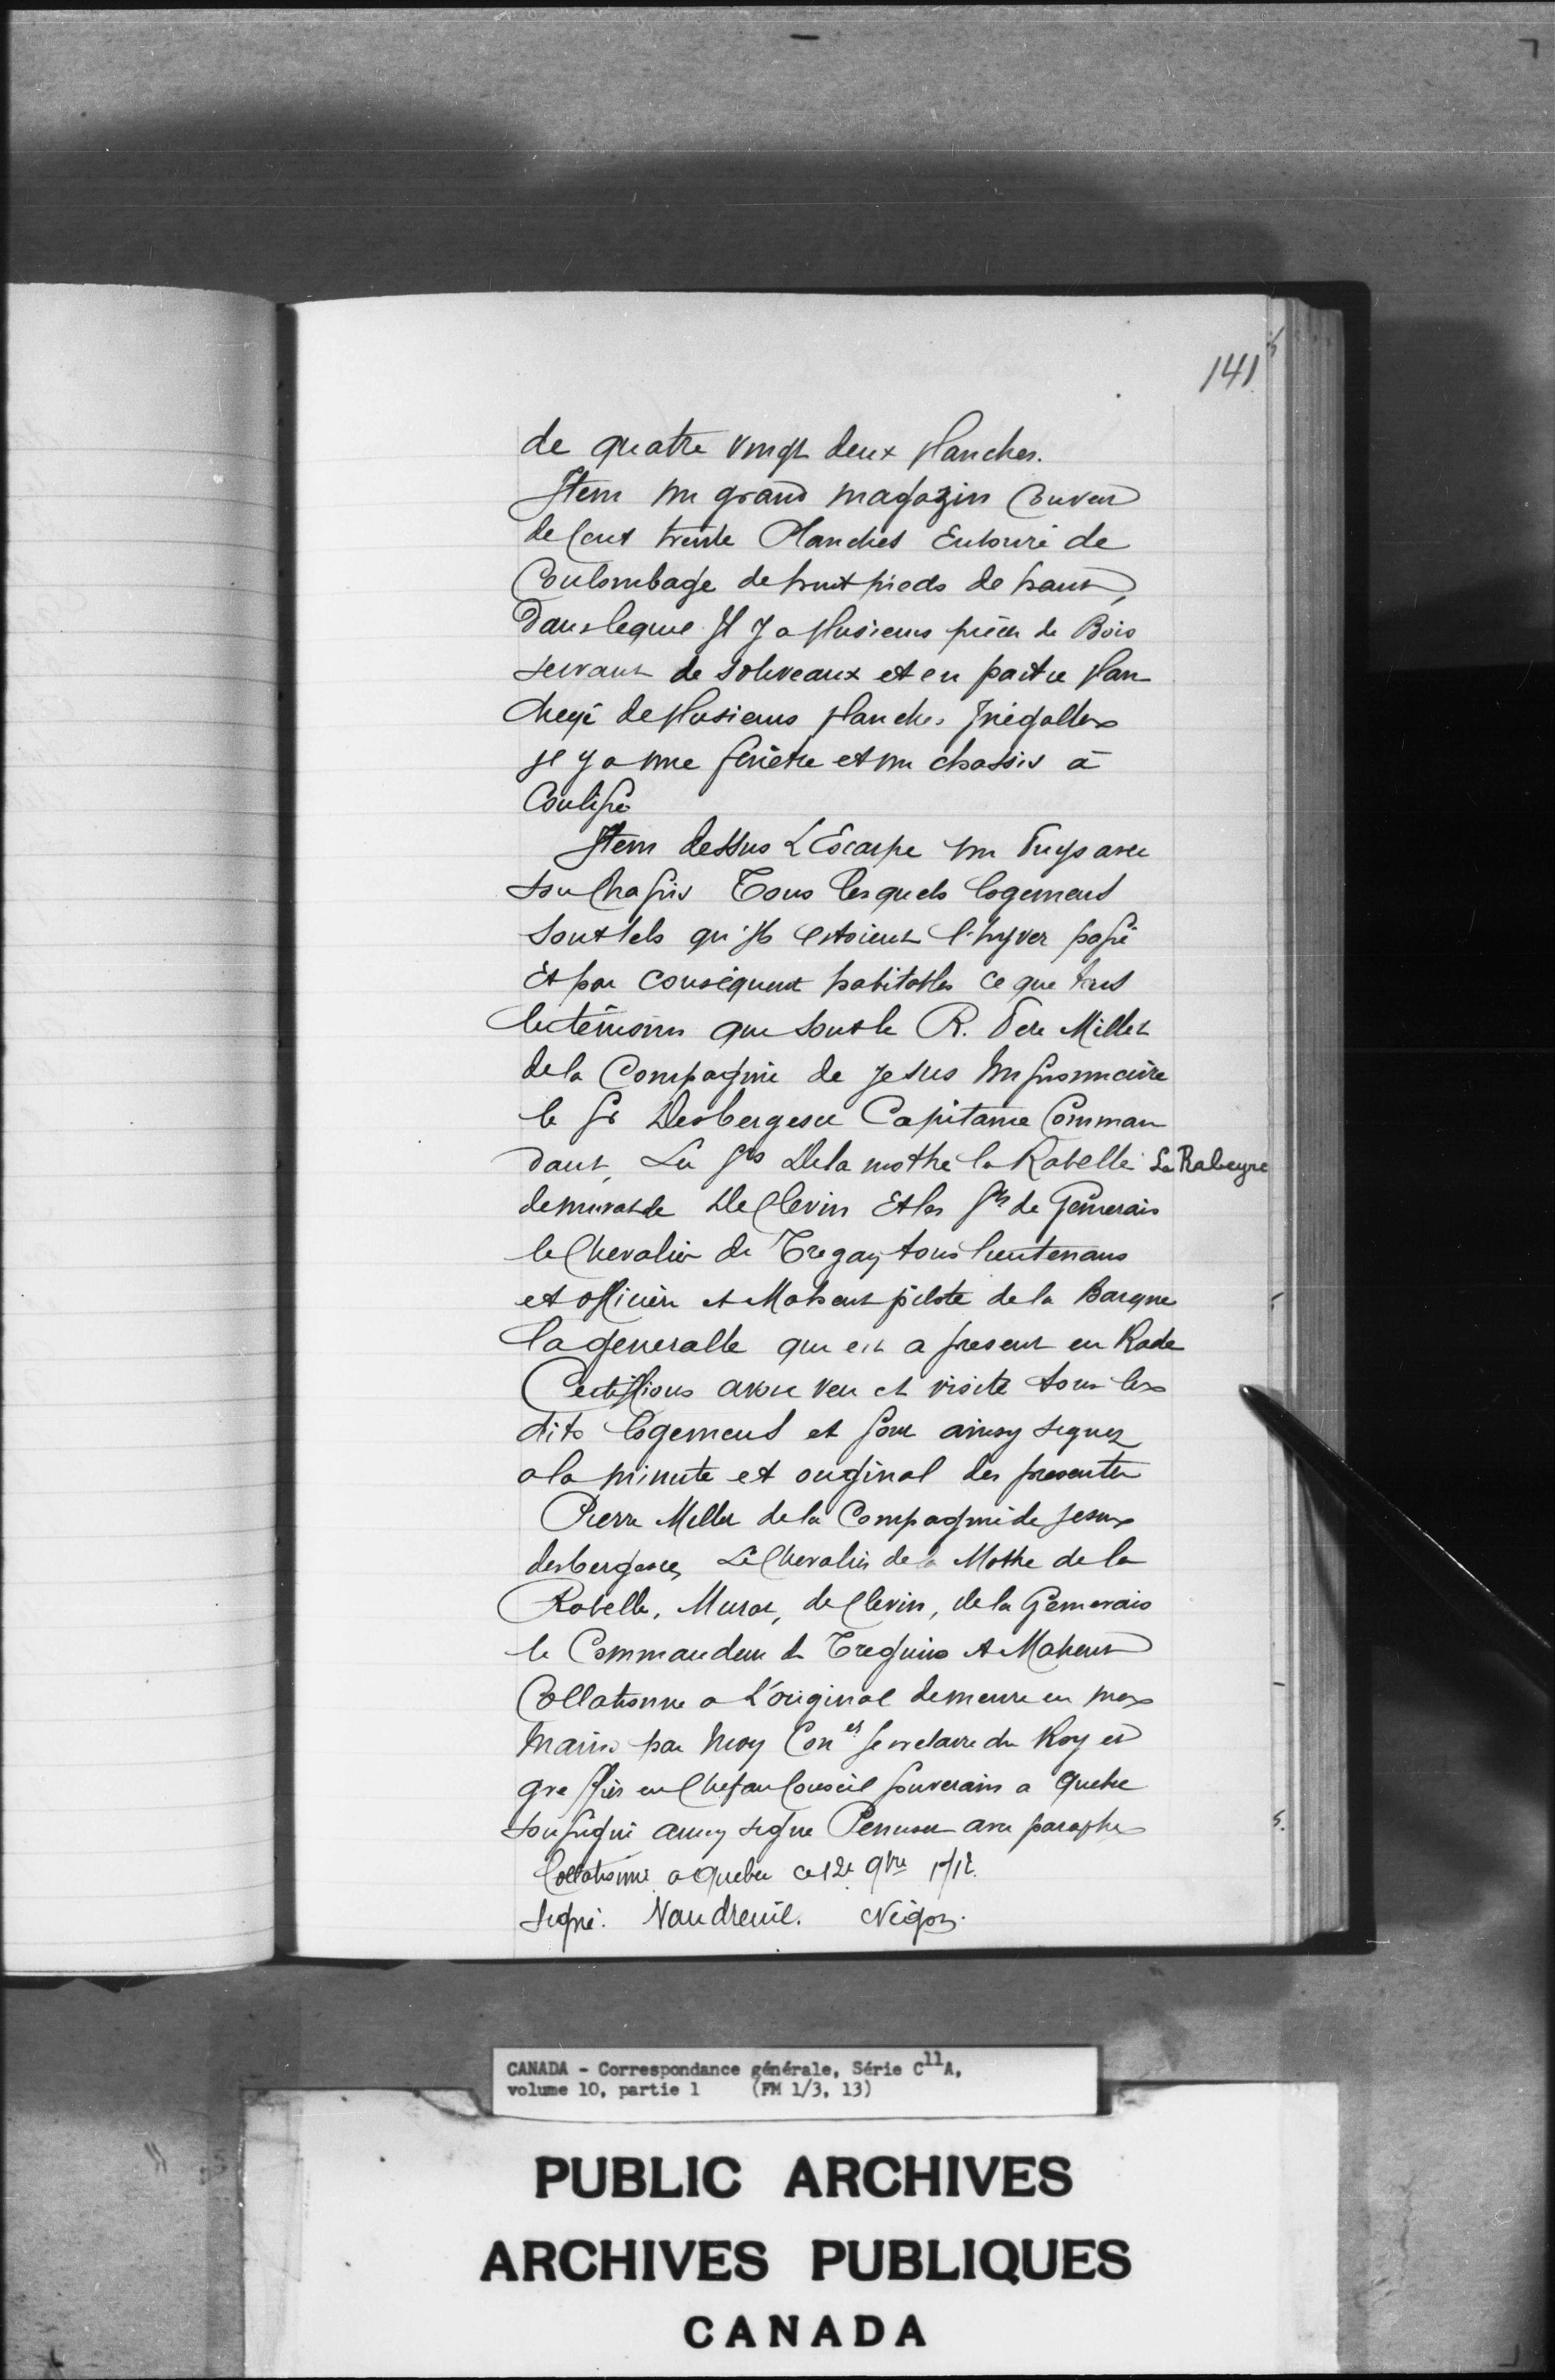 141
de quatre vingt deux planches.
Item un grand magazin Couvert
de Cent trente Planches Entouré de
Coulombage de huit pieds de haut,
Dans lequel Il y a plusieurs pièces de Bois
servant de soliveaux et en partie plan
cheyé de plusieurs planches Irégalles
Il y a une fenêtre et un chassis à
Coulisse
Item dessus L'Escarpe un Puys avec
son Chassis Tous lesquels logements
sont tels qu'ils estoient l'hyver passé
Et par conséquent habitables ce que tous
les témoins que sont le R. Pere Millet
de la Compagnie de Jesus Missionnaire
le Sr Desbergeres Capitaine Comman
dant, Les Srs De la mothe la Rabelle La Rabeyre
de murat de De Clerin Et les Srs de Gemerais
le Chevalier de Tregay tous lieutenans
et officiers et Maheut pilote de la Barque
la generalle qui est a present en Rade
Certiffions avoir veu et visité tous les
dits logements et sont ainsy signez
a la minute et original des presentes
Pierre Millet de la Compagnie de Jesus
desbergeres, Le Chevalier de la Mothe de la
Rabelle, Murat, de Clerin, de la Gemerais
le Commandeur de Treguins et Maheut
Collationné a L'original demeuré en mes
mains par moy Coner Secretaire du Roy et
greffier en Chef au Conseil Souverain a Quebec
soussigné ainsy signé Penuset avec paraphe
Collationné a Quebec ce 12e 9bre 1712.
Signé. Vaudreuil. Bégon.
CANADA - Correspondance générale, Série C11A,
volume 10, partie 1 (FM 1/3, 13)
PUBLIC ARCHIVES
ARCHIVES PUBLIQUES
CANADA